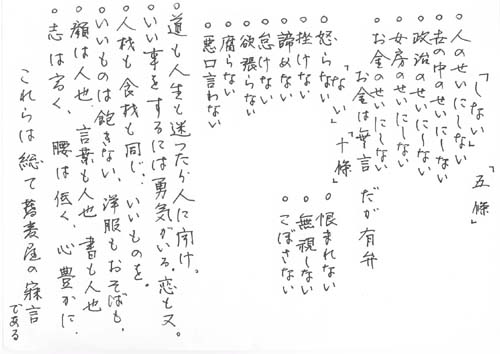 「しない」「五條」
○人のせいにしない
○世の中のせいにしない
○政治のせいにしない
○女房のせいにしない
○お金のせいにしない
お金は無言だが有弁
「ない」「十條」
○怒らない
○挫けない
○諦めない
○怠けない
○欲張らない
○腐らない
○悪口言わない
○恨まれない
○無視しない
○こぼさない
○道も人生も迷ったら人に聞け。
○いい事をするには勇気がいる。恋も又。
○人材も食材も同じ、いいものを。
○いいものは飽きない、洋服もおそばも。
○顔は人也、言葉も人也 書も人也
○志は高く、腰は低く、心豊かに、
これらは総て蕎麦屋の寐言
である